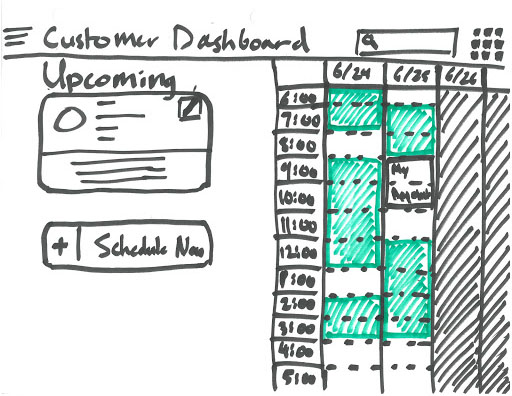 Customer Dashboard
Upcoming
+ Schedule Now
6/24 6/25 6/26
6:00
7:00
8:00
9:00
My
10:00
11:00
12:00
1:00
2:00
3:00
4:00
5:00